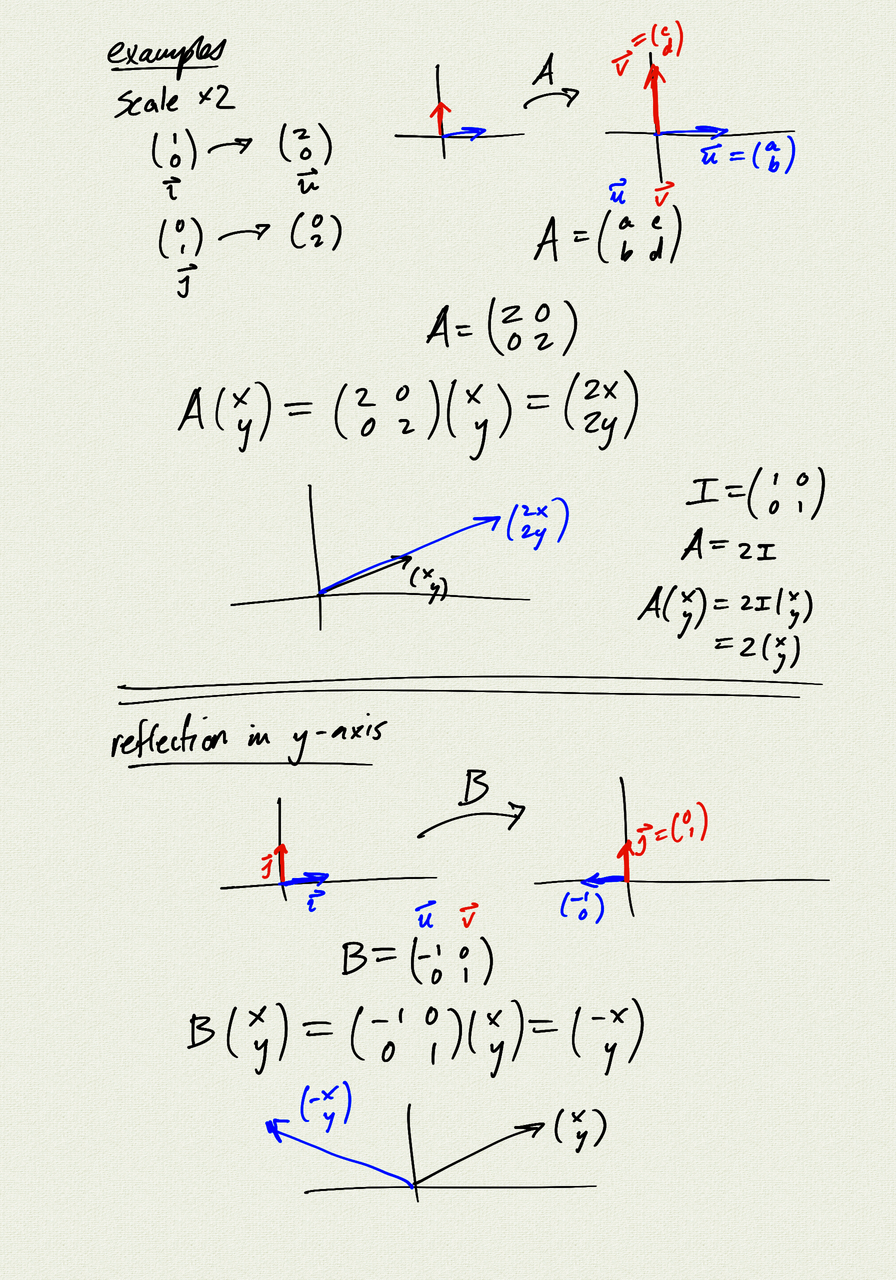 examples
scale ×2
(1 0) → (2 0)
i⃗ u⃗
(0 1) → (0 2)
j⃗
A
v⃗ = (c d)
u⃗ = (a b)
u⃗ v⃗
A = (a c
b d)
A = (2 0
0 2)
A(x y) = (2 0
0 2)(x y) = (2x 2y)
(2x 2y)
(x y)
I = (1 0
0 1)
A = 2I
A(x y) = 2I(x y)
= 2(x y)
reflection in y-axis
B
j⃗
i⃗
j⃗ = (0 1)
(-1 0)
u⃗ v⃗
B = (-1 0
0 1)
B(x y) = (-1 0
0 1)(x y) = (-x y)
(-x y)
(x y)